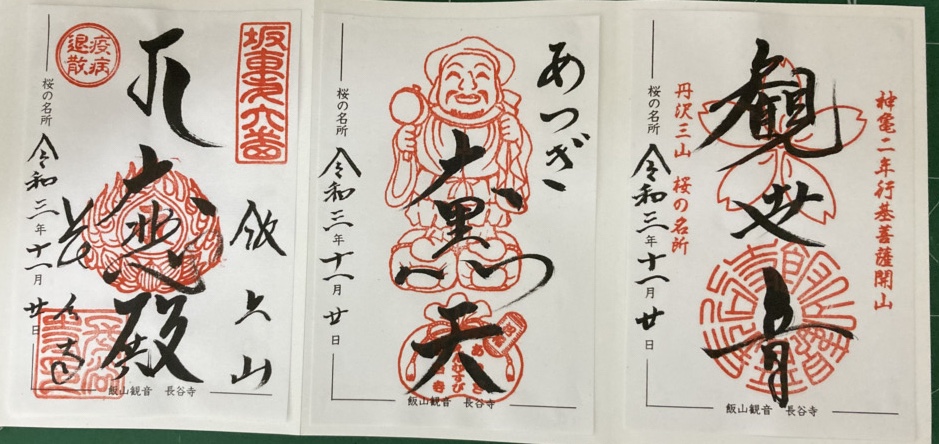 神亀二年行基菩薩開山
観世音
丹沢三山 桜の名所
桜の名所
令和三年十一月廿日
飯山観音 長谷寺
あつぎ
大黒天
桜の名所
令和三年十一月廿日
飯山観音 長谷寺
坂東第六番
飯上山
大悲殿
疫病退散
長谷寺
桜の名所
令和三年十一月廿日
飯山観音 長谷寺